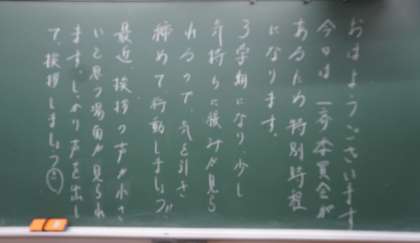 おはようございます
今日は、一斉委員会が
あるため特別時程
になります。
3学期になり、少し
気持ちに緩みが見ら
れるので、気を引き
締めて行動しましょう。
最近、挨拶の声が小さ
いと思う場面が見られ
ます。しっかり声を出し
て、挨拶しましょう